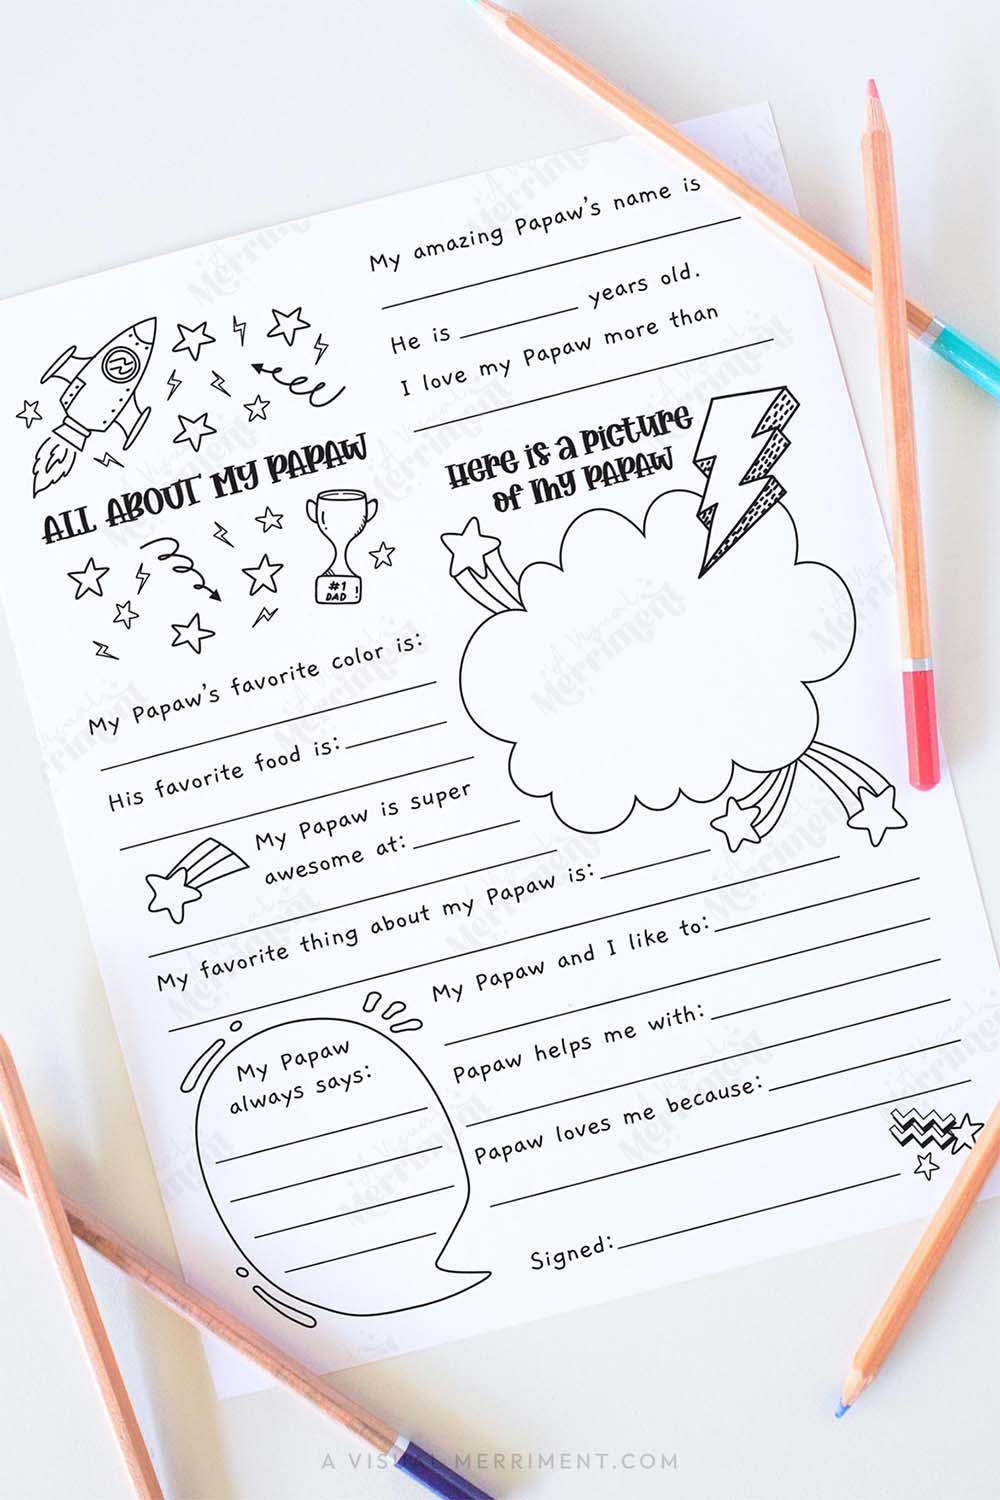 My amazing Papaw's name is
He is
years old.
I love my Papaw more than
ALL ABOUT MY PAPAW
#1
DAD !
Here is a picture
of my PAPAW
My Papaw's favorite color is:
His favorite food is:
My Papaw is super
awesome at:
My favorite thing about my Papaw is:
My Papaw and I like to:
Papaw helps me with:
Papaw loves me because:
My Papaw
always says:
Signed:
A Visual
Merriment
A VISUAL MERRIMENT.COM